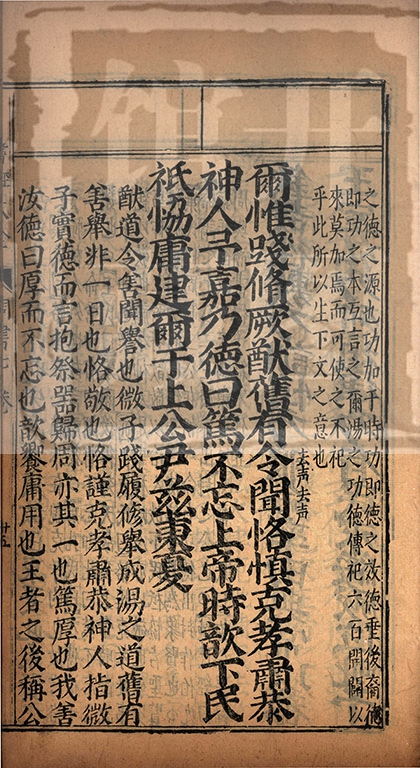 之德之源也功加于時功即德之效德垂後裔德
即功之本互言之爾湯之功德傳祀六百開闢以
來莫加焉而可使之不祀
乎此所以生下文之意也
爾惟踐脩厥猷舊有令聞恪慎克孝肅恭
去声去声
神人予嘉乃德曰篤不忘上帝時歆下民
祗恊庸建爾于上公尹茲東夏
猷道令善聞譽也微子踐履修舉成湯之道舊有
善譽非一日也恪敬也恪謹克孝肅恭神人指微
子實德而言抱祭器歸周亦其一也篤厚也我善
汝德曰厚而不忘也歆饗庸用也王者之後稱公
廿五